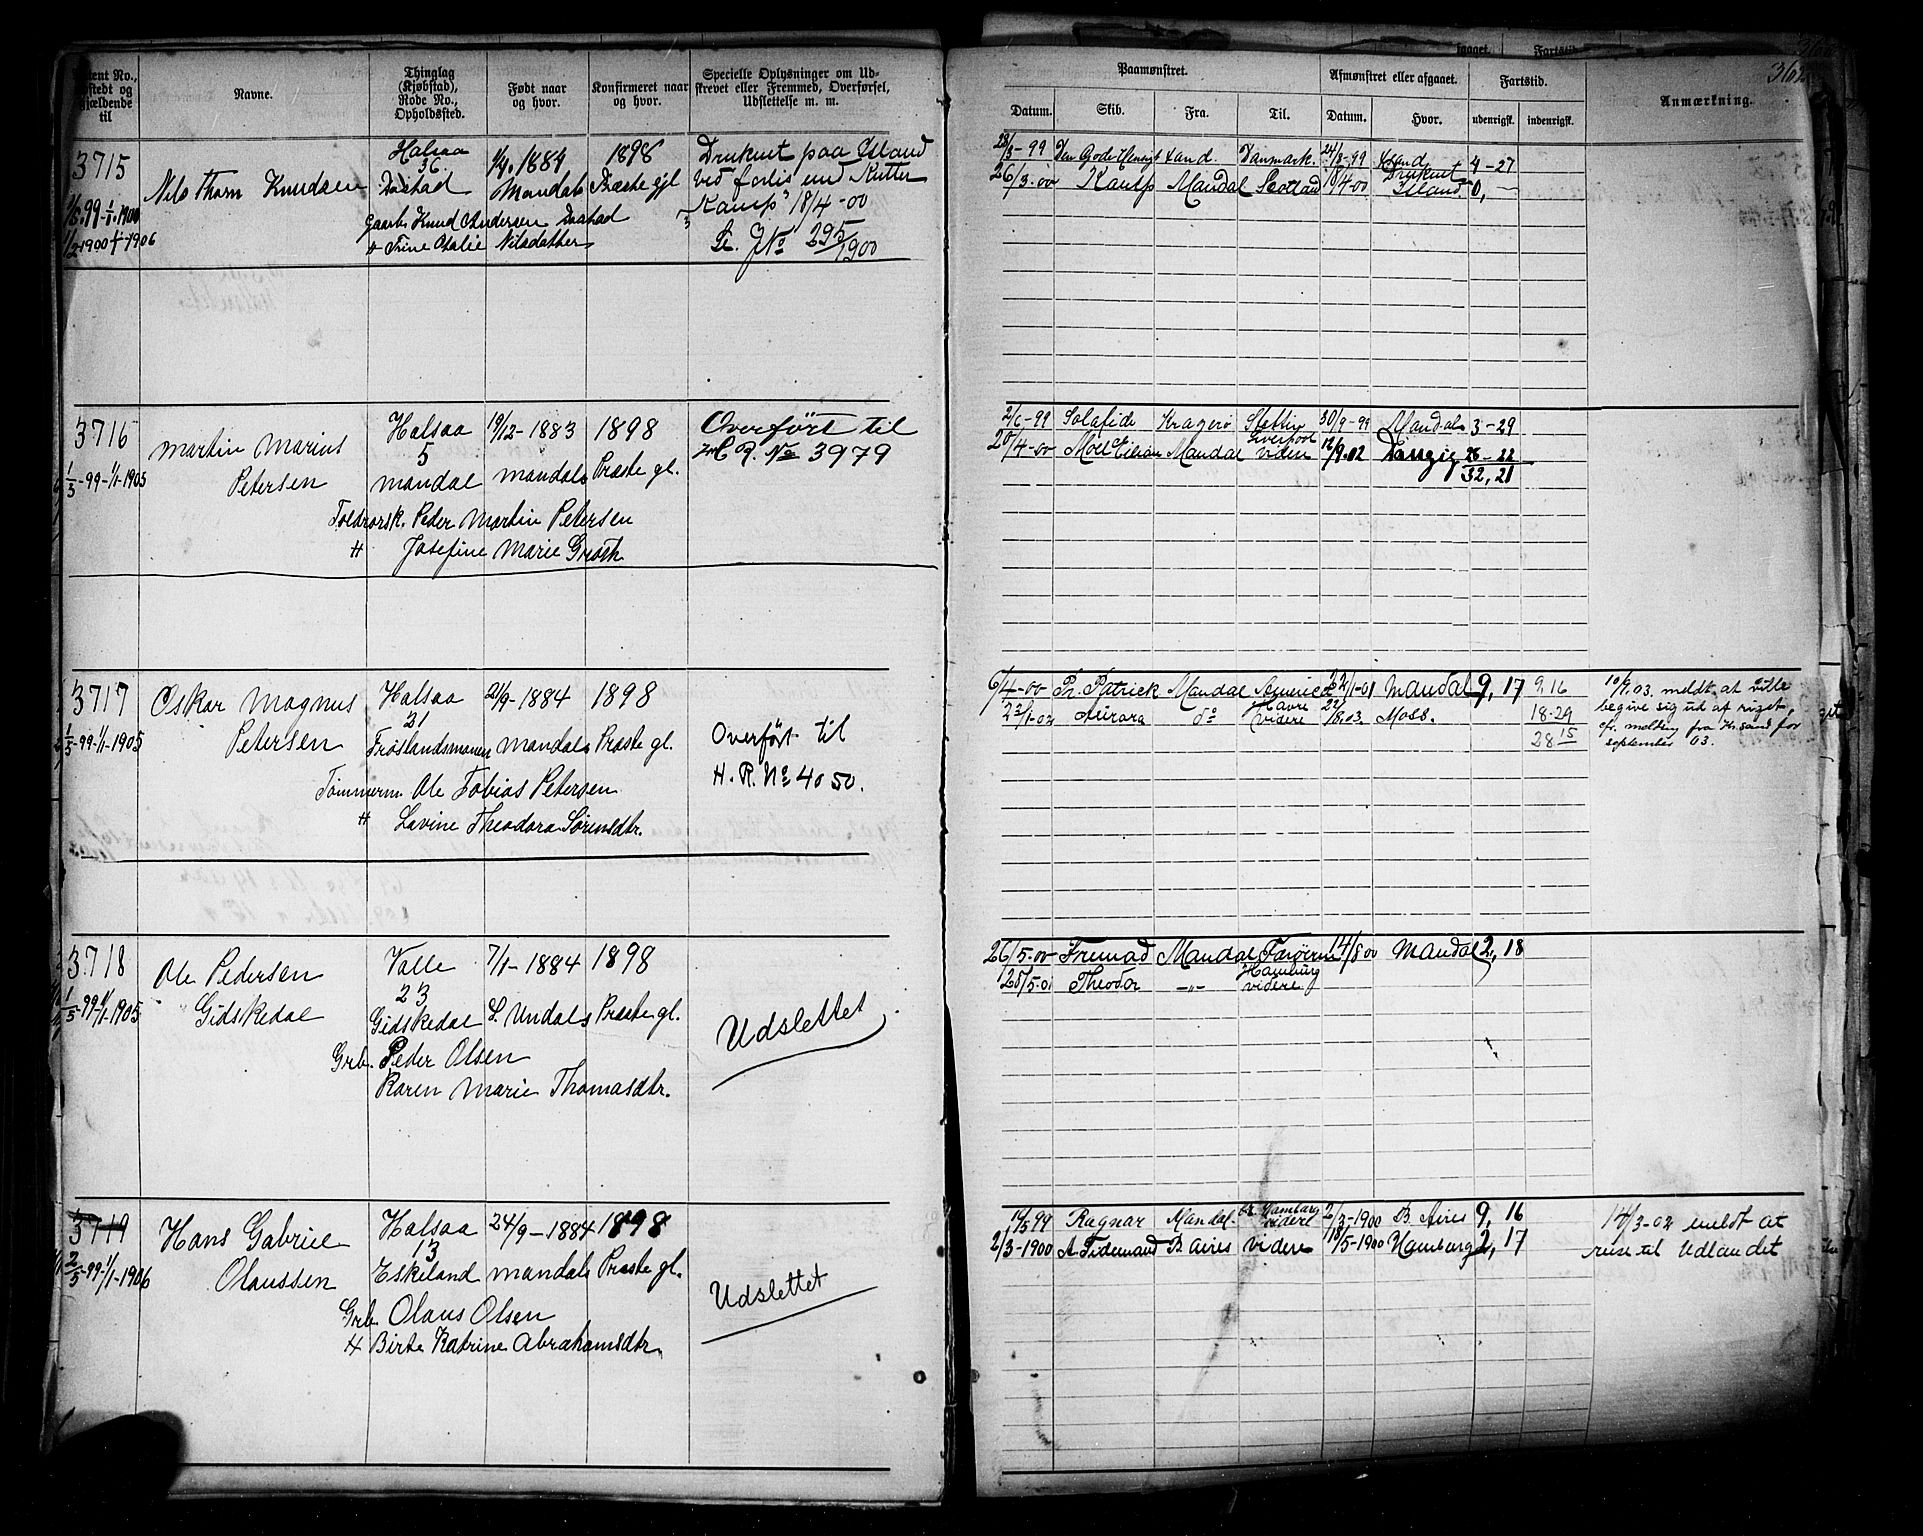 Navne.
Thinglag
(Kjøbstad),
Rode No.,
Opholdssted.
Født naar
og hvor.
Konfirmeret naar
og hvor.
Specielle Oplysninger om Ud-
skrevet eller Fremmed, Overførsel,
Udslettelse m. m.
3715
Nils Thorn Knudsen
Halsaa
36
1884
Mandals
1898
Præste gjl
Druknet paa Island
ved forlis med Kutter
"Kamp" 18/4-00
Se. J No 295/1900
Gaarbr. Knud Andersen
Trine Otalie Nilsdatter
3716
1/5-99-1/1-1905
Martin Marius
Petersen
Halsaa
5
Mandal
19/12-1883
Mandals
1898
Præste gl.
Overført til
H. R. No 3979
Peder Martin Petersen
Josefine Marie
3717
1/5-99-1/1-1905
Oskar Magnus
Petersen
Halsaa
31
Frøislandsmonen
21/9-1884
Mandals
1898
Præste gl.
Overført til
H. R. No 4050.
Tømmerm. Ole Tobias Petersen
Lovine Theodora Sørensdtr.
3718
1/5-99-1/1-1905
Ole Pedersen
Gidskedal
Valle
23
Gidskedal
7/1-1884
S. Undals
1898
Præste gl.
Udslettet
Grb. Peder Olsen
Karen Marie Thomasdtr.
3719
2/5-99-1/1-1906
Hans Gabriel
Olaussen
Halsaa
13
Eskeland
24/9-1884
Mandals
1898
Præste gl.
Udslettet
Grb. Olaus Olsen
Birte Katrine Abrahamsdtr.
Paamønstret.
Afmønstret eller afgaaet.
Fartstid.
Anmærkning.
Datum.
Skib.
Fra.
Til.
Datum.
Hvor.
udenrigsk.
indenrigsk.
28/3-99 Den Gode Hensigt Danmark. 4-27
26/3.00 Kamp Mandal Scotland 18/4-00 Druknet
Island 0,
2/6-99 Solafide Kragerø Stettin 30/9-99 Mandal 3-29
Liverpool
20/4-00 Mandal videre 12/9.02 Danzig 28-22
32,21
6/4-00 Patrick Mandal America 22/1-01 Mandal 9,17 9.16
Havre
23/1-02 Aurora do videre Moss. 18-29
28 15
10/9.03. meldt at ville
begive sig ud af riget,
cfr. melding fra Kr.sand for
september 03.
26/5-00 Trunad Mandal Færøerne 14/8 00 Mandal 2,18
Hamburg
28/5-01 Theodor -"- videre
Ragnar Mandal Hamburg
videre 2/3-1900 B. Aires 9,16
2/3-1900 A. Tidemand B. Aires videre 18/5-1900 Hamburg 2,17
14/3-02 meldt at
reise til Udlandet